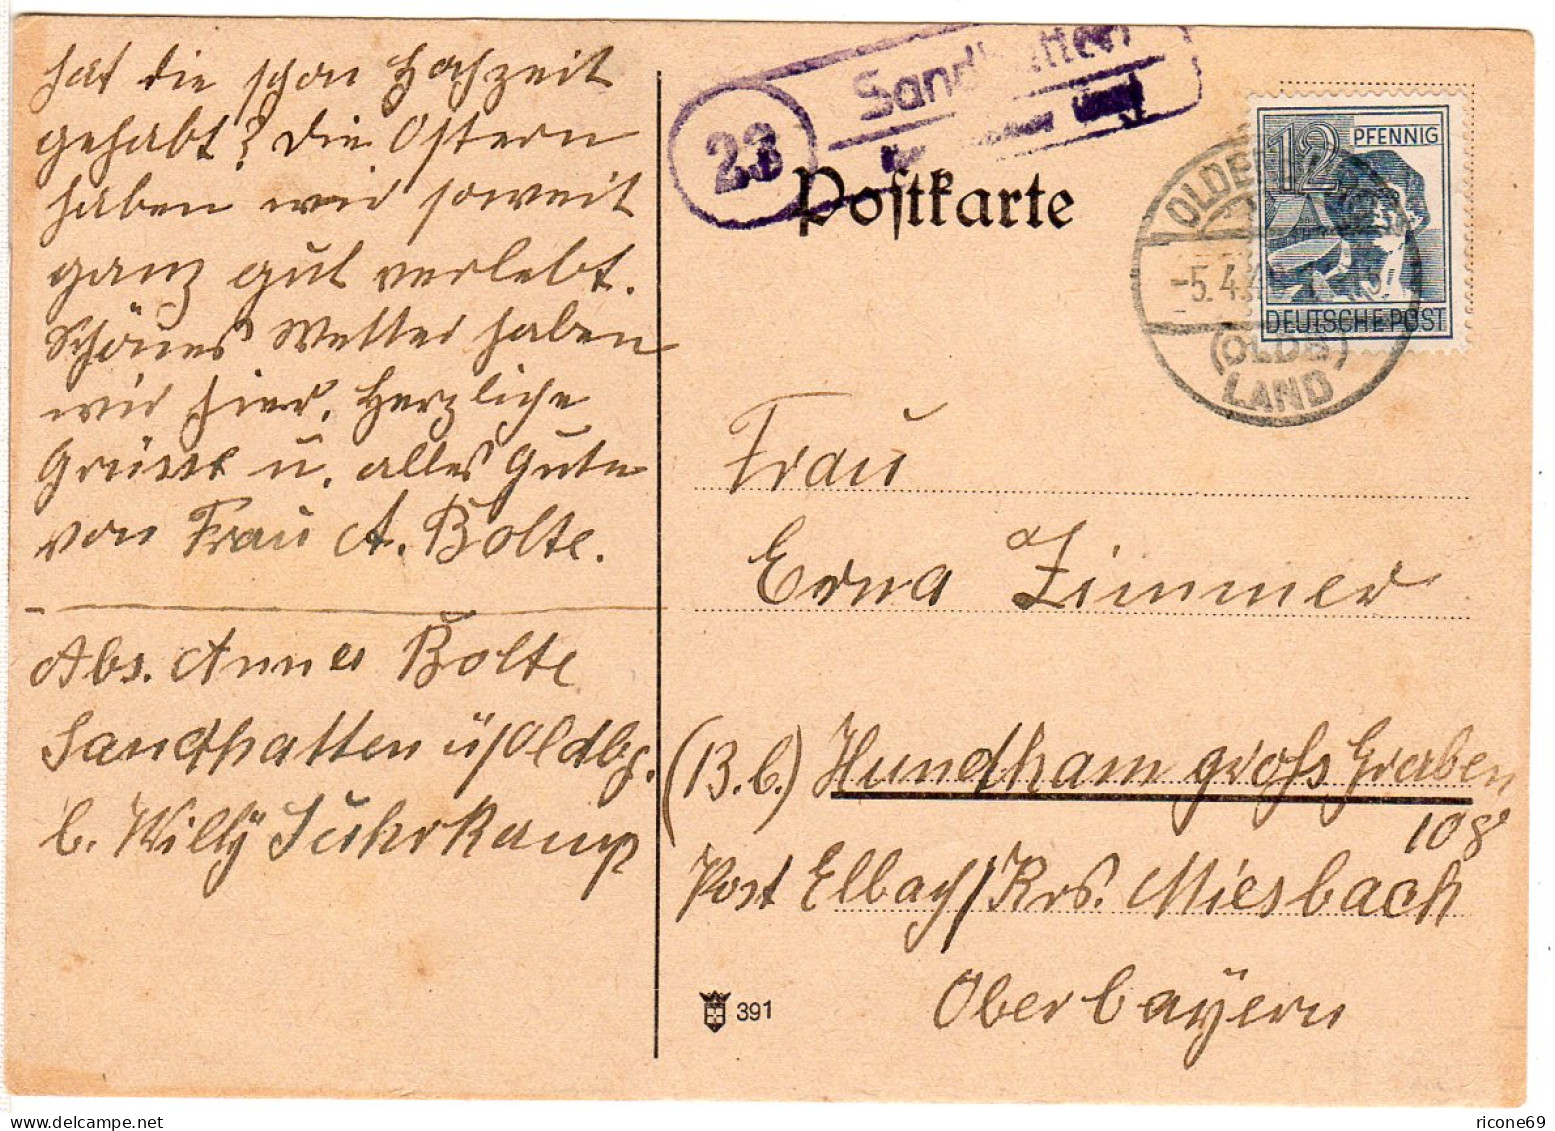 hat die schon Hochzeit
gehabt? Die Ostern
haben wir soweit
ganz gut verlebt.
Schönes Wetter haben
wir hier. Herzliche
Grüsse u. alles Gute
von Frau A. Bolte.
Abs. Annes Bolte
Sandhatten ü/Oldbg.
b. Willy Suhrkamp
23
Sandhatten
Postkarte
12 PFENNIG
DEUTSCHE POST
-5.4.
(OLDB)
LAND
Frau
Erna Zimmer
(13.b.) Hundham gross Graben
108
Post Elbach/Krs. Miesbach
Oberbayern
391
ricone69